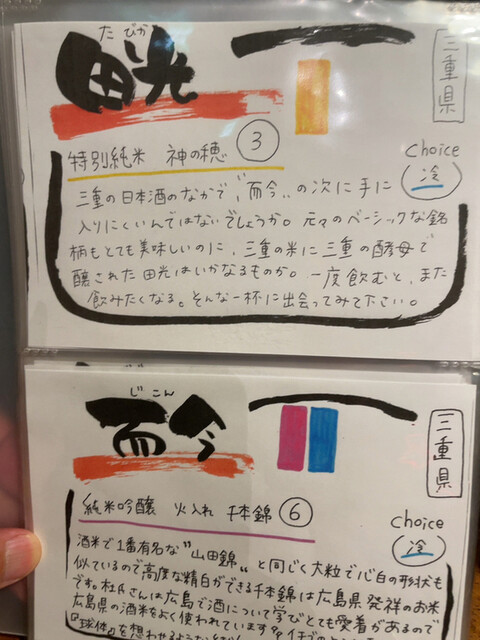 たびか
田光
三重県
特別純米 神の穂 ③
choice
冷
三重の日本酒のなかで、"而今"の次に手に
入りにくいんではないでしょうか。元々のベーシックな銘
柄もとても美味しいのに、三重の米に三重の酵母で
醸された田光はいかなるものか。一度飲むと、また
飲みたくなる。そんな一杯に出会ってみて下さい。
じこん
而今
三重県
純米吟醸 火入れ 千本錦 ⑥
choice
冷
酒米で1番有名な"山田錦"と同じく大粒で心白の形状も
似ているので高度な精白ができる千本錦は広島県発祥のお米
です。杜氏さんは広島で酒について学びとても愛着があるので
広島県の酒米をよく使われています。
『球体』を想わせるような